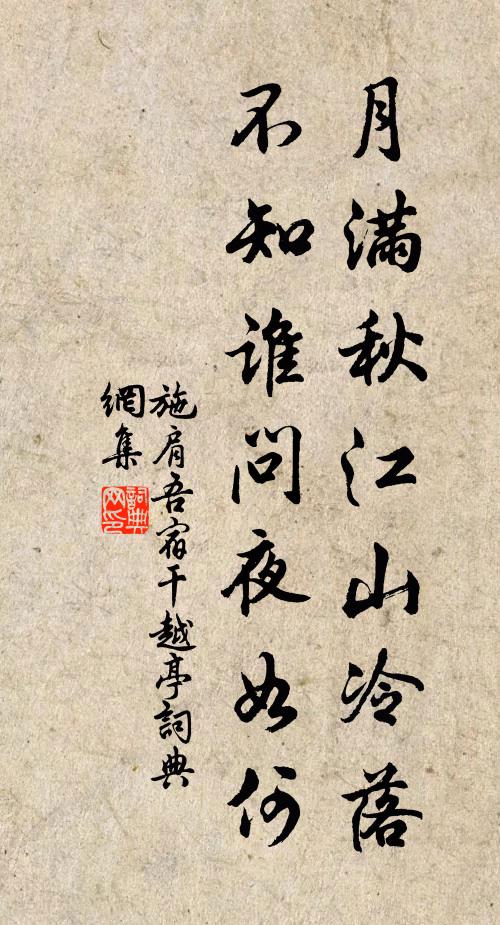 月滿秋江山冷落
不知誰問夜如何
施肩吾宿干越亭詞典
網集
詞典
网印